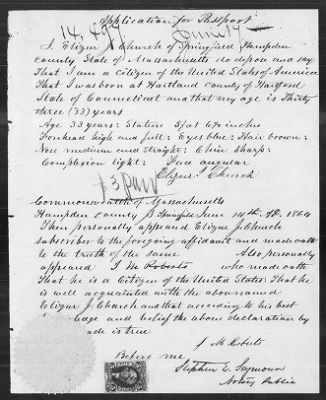 Application for Passport
14,497 June 17
I, Elizur J Church of Springfield Hampden
county State of Massachusetts do depose and say
That I am a citizen of the United States of America
That I was born at Hartland county of Hartford
State of Connecticut and that my age is Thirty
three (33) years
Age 33 years: Stature 5 feet 6¾ inches
Forehead high and full: Eyes blue: Hair brown:
Nose medium and straight: Chin sharp:
Complexion light: Face angular
Elizur J Church
Commonwealth of Massachusetts
Hampden county S Springfield June 14th AD. 1864
Then personally appeared Elizur J. Church
subscriber to the foregoing affidavit and made oath
to the truth of the same Also personally
appeared J M Roberts who made oath
That he is a Citizen of the United States That he
is well acquainted with the above named
Elizur J Church and that according to his best
and belief the above declaration by
made is true
J M Roberts
Before me
Stephen E. Seymour
Notary Public